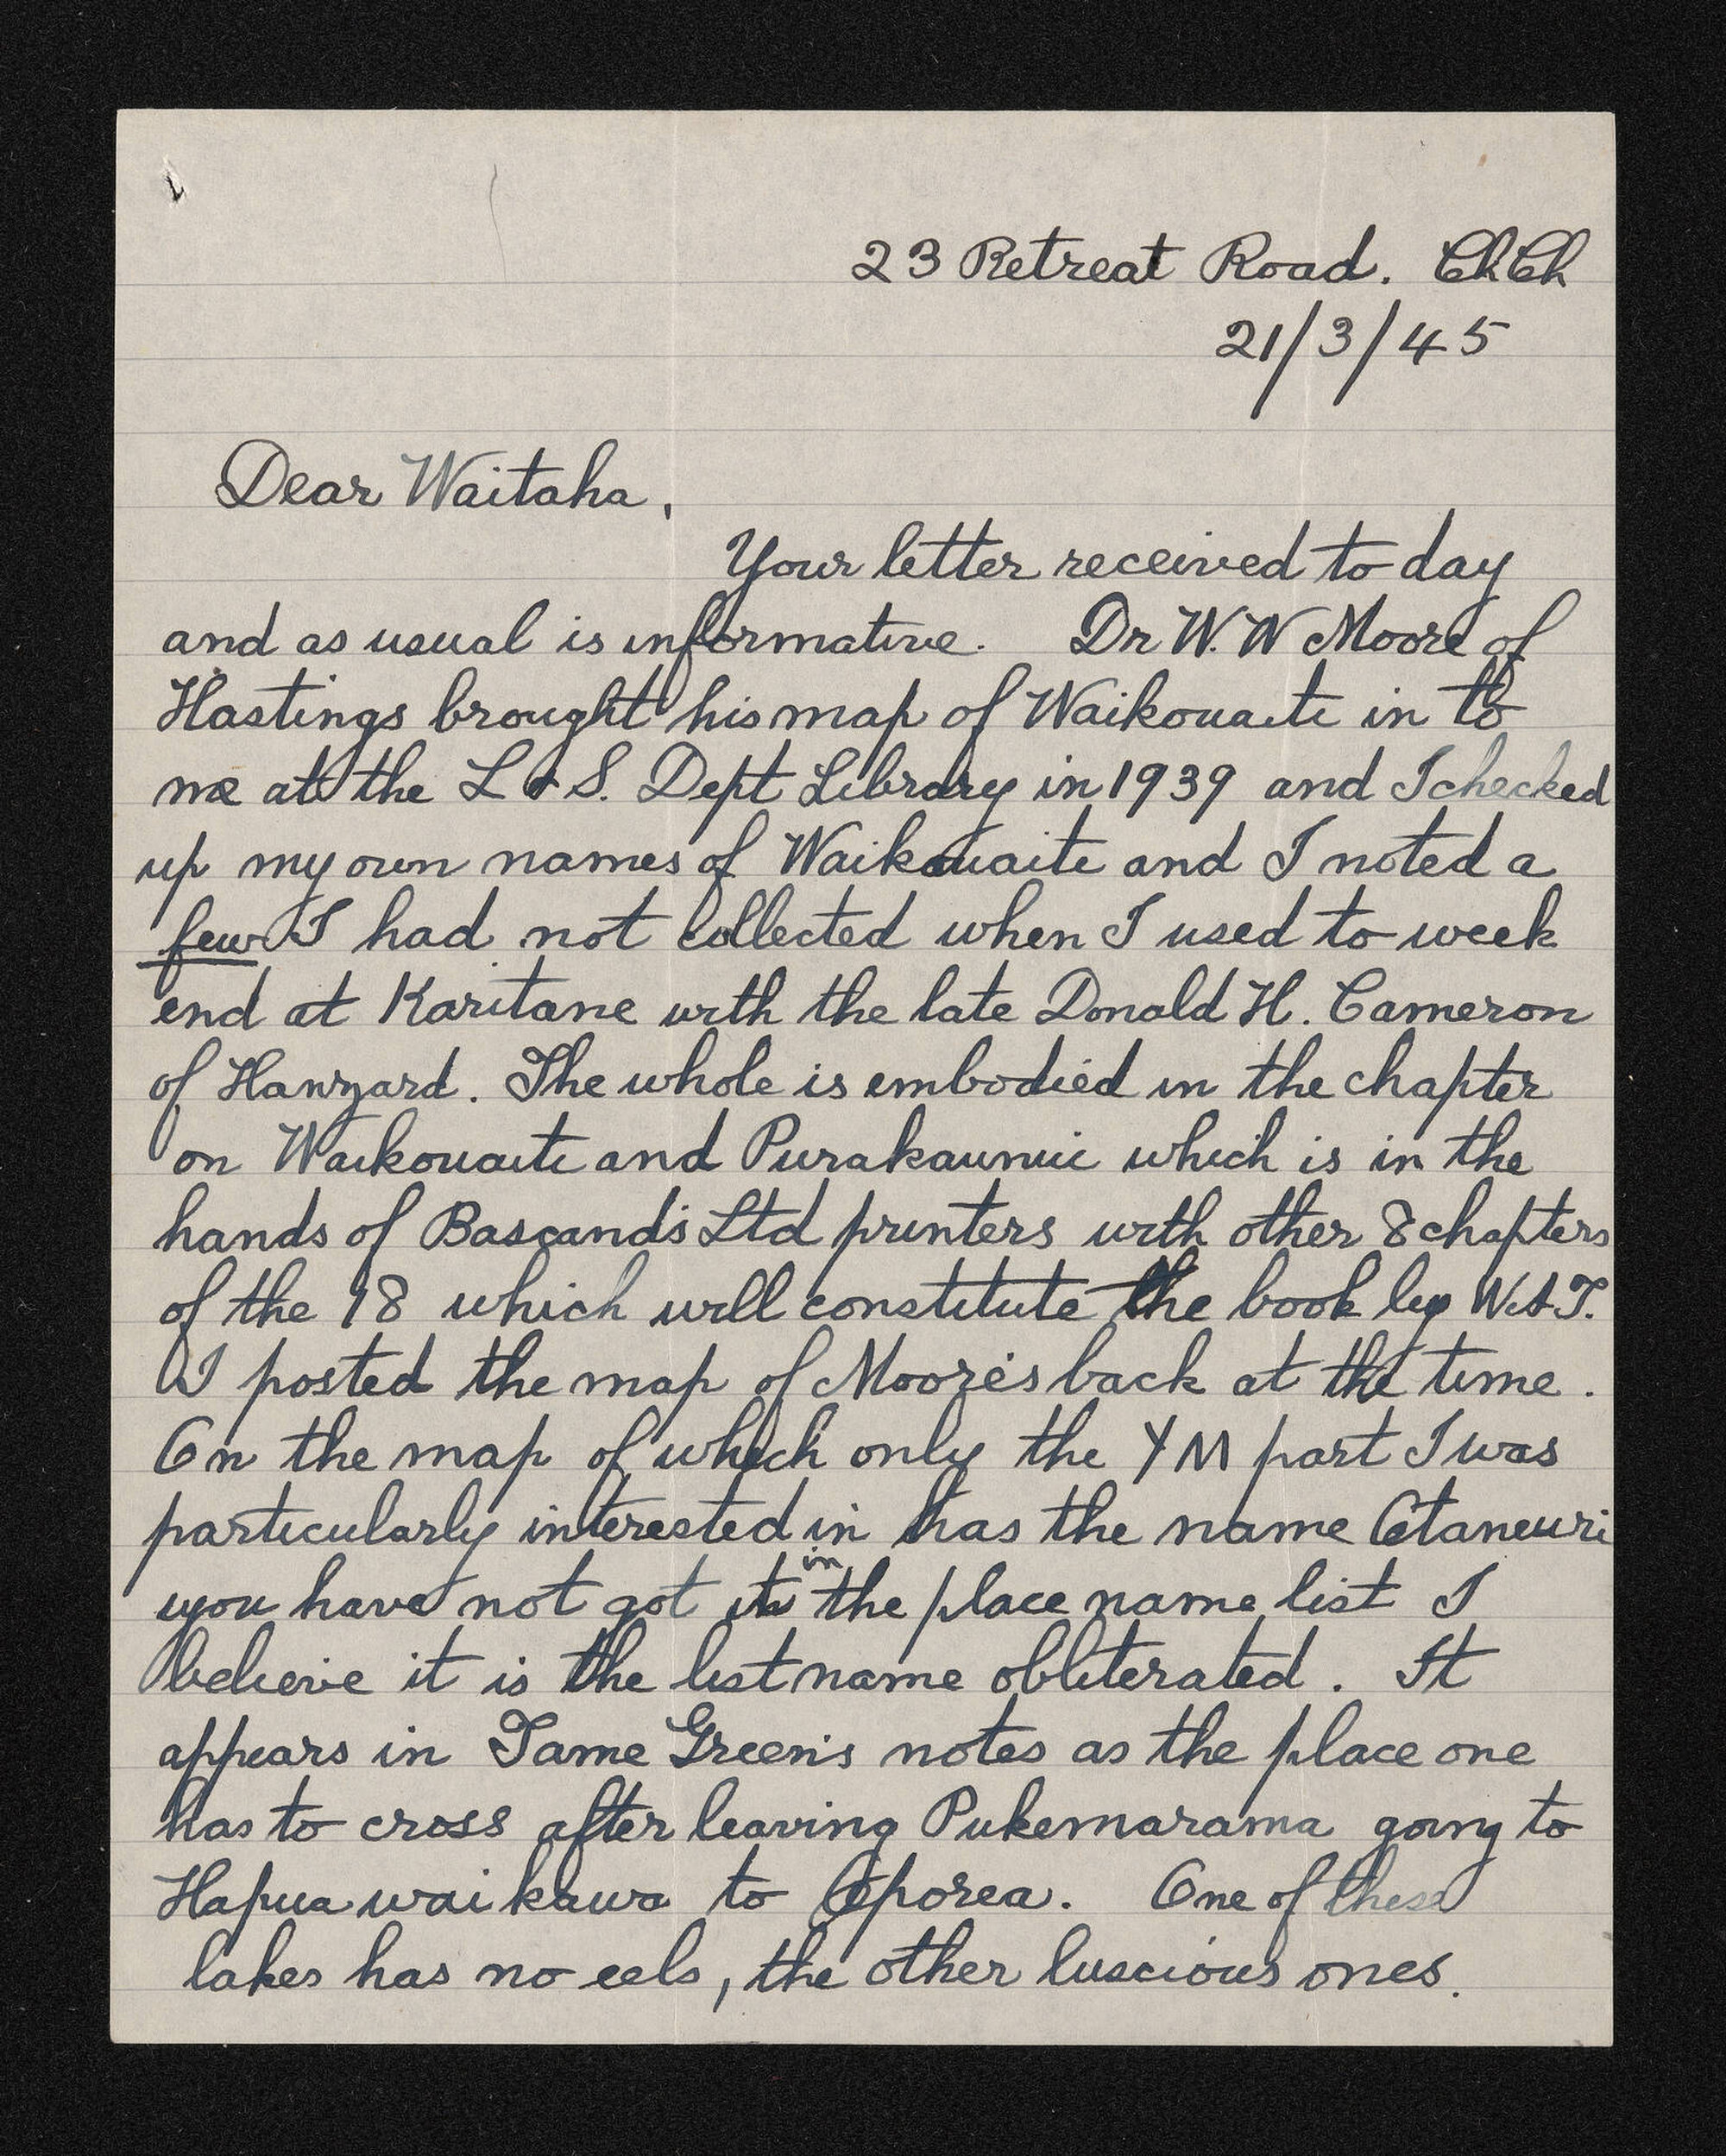 23 Retreat Road. ChCh
21/3/45
Dear Waitaha,
Your letter received to day
and as usual is informative. Dr W. W Moore of
Hastings brought his map of Waikouaiti in to
me at the L & S. Dept Library in 1939 and I checked
up my own names of Waikouaiti and I noted a
few I had not collected when I used to week
end at Karitane with the late Donald H. Cameron
of Hanyard. The whole is embodied in the chapter
on Waikouaiti and Purakaunui which is in the
hands of Bascands Ltd printers with other 8 chapters
of the 18 which will constitute the book by W.A.T.
I posted the map of Moore's back at the time.
On the map of which only the YM part I was
particularly interested in has the name Otaneuri
you have not got it in the place name list I
believe it is the last name obliterated. It
appears in Tame Green's notes as the place one
has to cross after leaving Pukemarama going to
Hapua waikawa to Oporea. One of these
lakes has no eels, the other luscious ones.